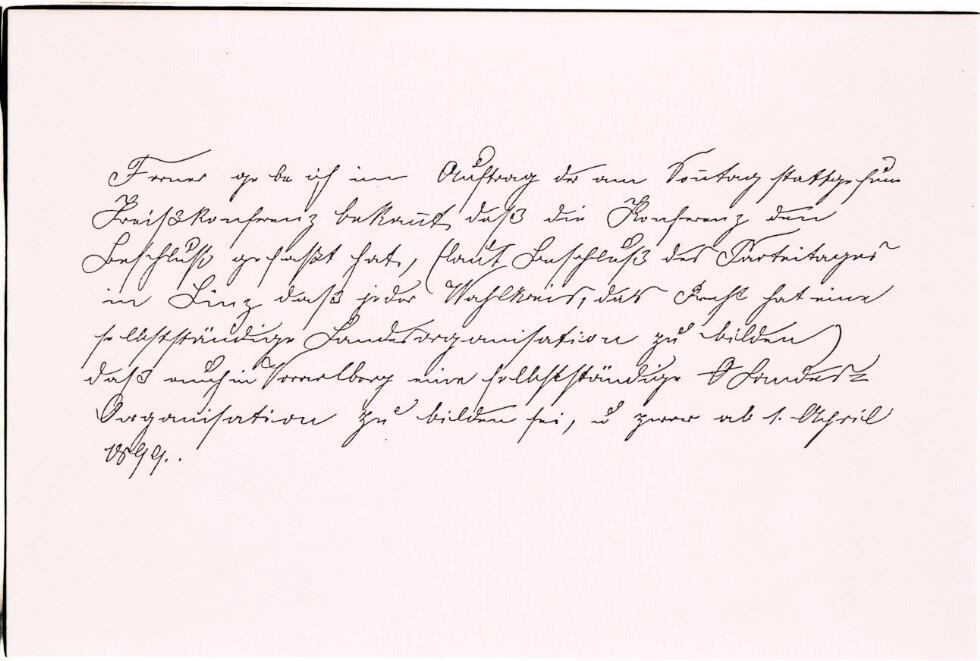 Ferner gebe ich im Auftrag der am Sontag stattgefun
Kreißkonferenz bekant, daß die Konferenz den
Beschluß gefaßt hat, (laut Beschluß des Parteitages
in Linz daß jeder Wahlkreis, das Recht hat eine
selbstständige Landesorganisation zu bilden)
daß auch in Vorarlberg eine selbstständige Landes=
Organisation zu bilden sei, u zwar ab 1. April
1899.